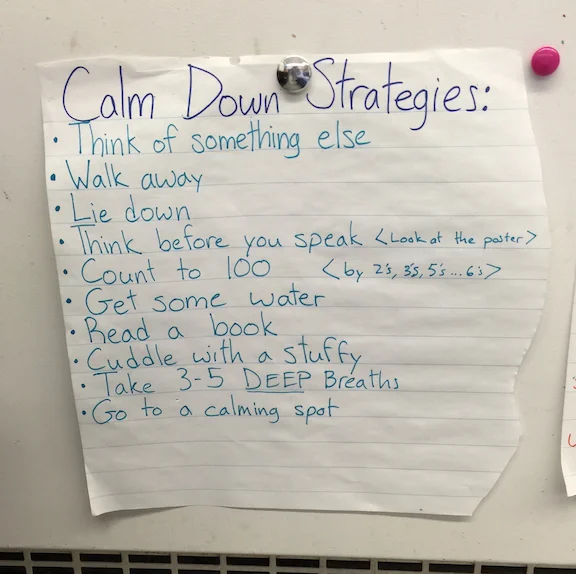 Calm Down Strategies:
• Think of something else
• Walk away
• Lie down
• Think before you speak <Look at the poster>
• Count to 100 <by 2's, 3's, 5's...6's>
• Get some water
• Read a book
• Cuddle with a stuffy
• Take 3-5 DEEP Breaths
• Go to a calming spot